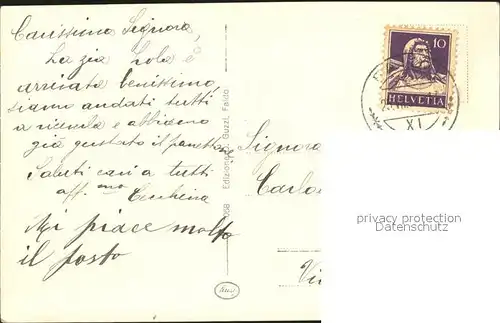 Carissima Signora,
La zia Lola è
arrivata benissimo
siamo andati tutti
a riceverla e abbiamo
già gustato il panettone
Saluti cari a tutti
aff.mo
Mi piace molto
il posto
Edizione G. Guzzi, Faido
Signora
Carlo
10
HELVETIA
XI
privacy protection
Datenschutz